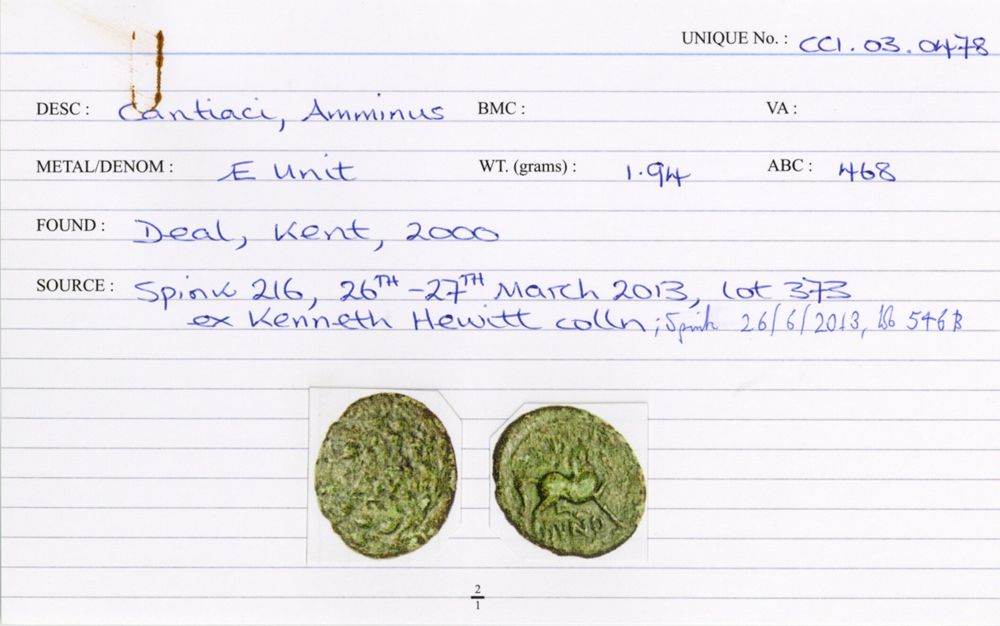 UNIQUE No. : CCI. 03. 0478
DESC : Cantiaci, Amminus BMC : VA :
METAL/DENOM : Æ Unit WT. (grams) : 1.94 ABC : 468
FOUND : Deal, Kent, 2000
SOURCE : Spink 216, 26TH-27TH March 2013, lot 373
ex Kenneth Hewitt colln; Spink 26/6/2013, 546B
2
1